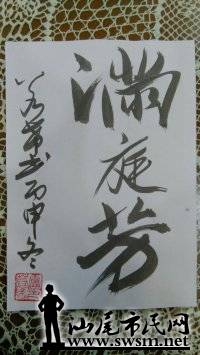 满庭芳
书丙申冬
汕尾市民网
www.swsm.net